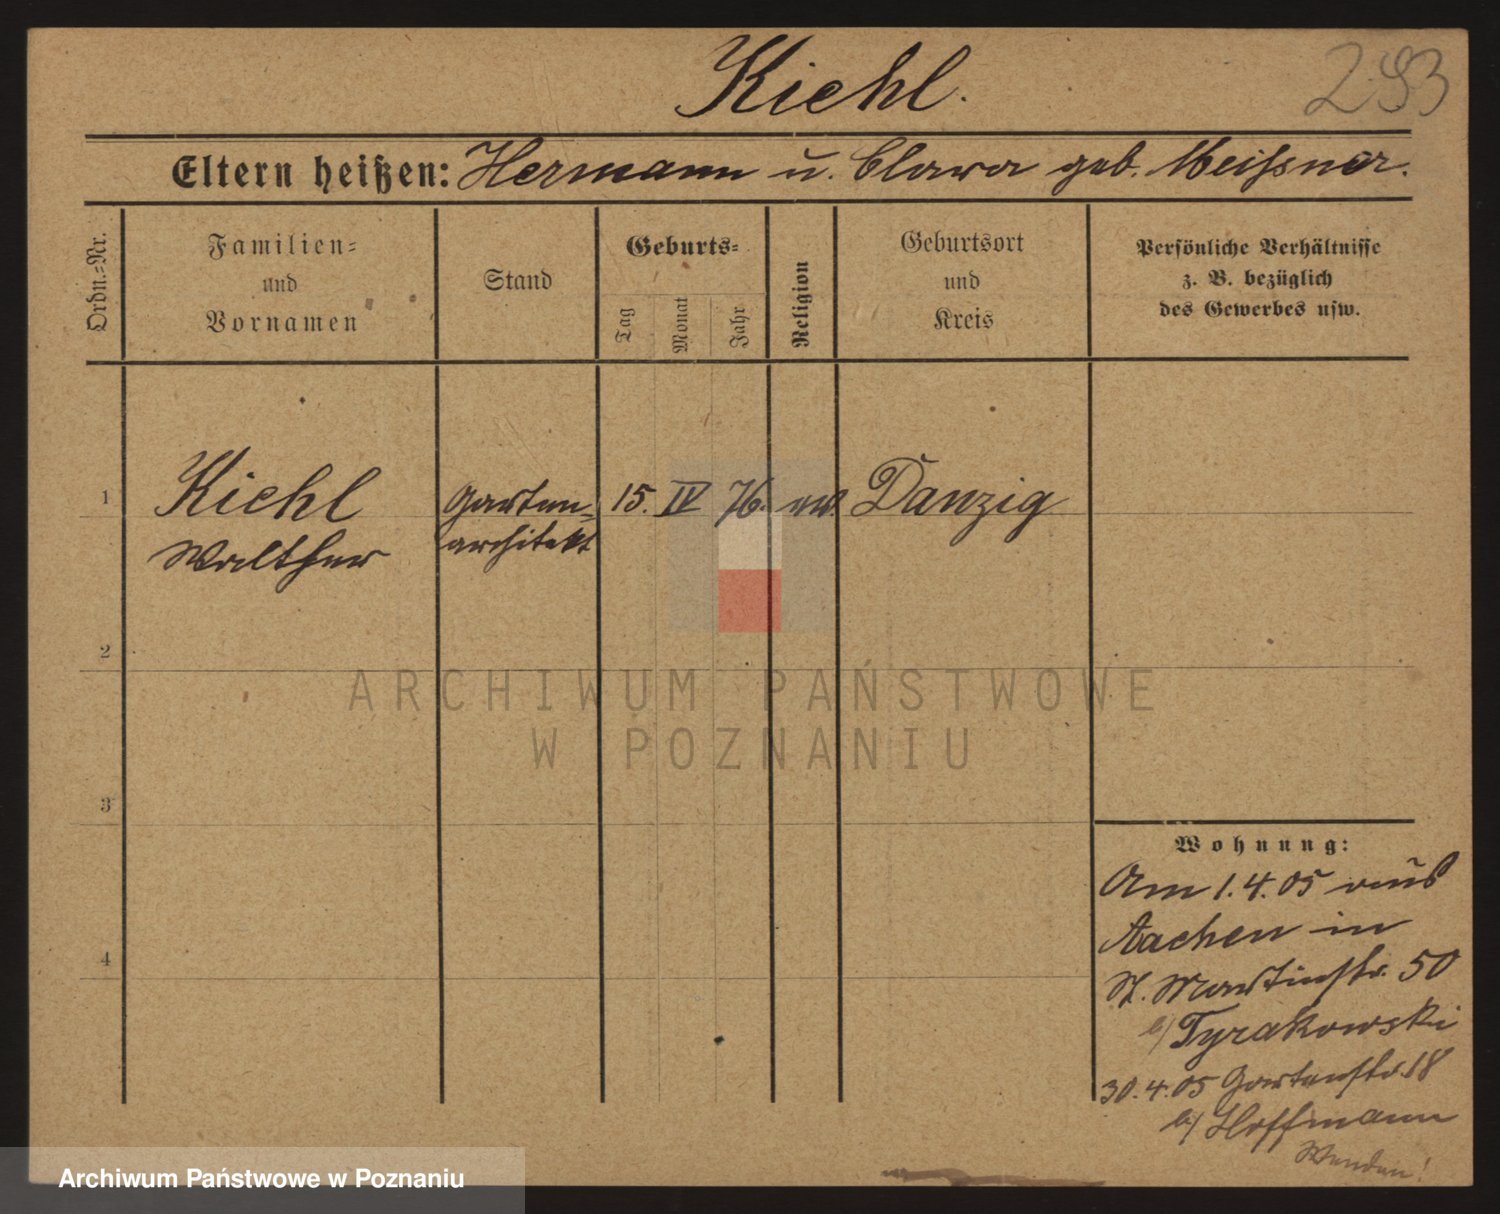 Kiehl.
293
Eltern heißen: Hermann u. Clara geb. Meißner.
Ordn.=Nr.
Familien=
und
Vornamen
Stand
Geburts=
Tag
Monat
Jahr
Religion
Geburtsort
und
Kreis
Persönliche Verhältnisse
z. B. bezüglich
des Gewerbes usw.
1
Kiehl
Walther
Garten=
architekt
15. IV 76. ev. Danzig
2
ARCHIWUM PAŃSTWOWE
W POZNANIU
3
Wohnung:
Am 1.4.05 aus
Aachen in
St. Martinstr. 50
b/ Tyrakowski
4
30.4.05 Gartenstr. 18
b/ Hoffmann
Wenden!
Archiwum Państwowe w Poznaniu